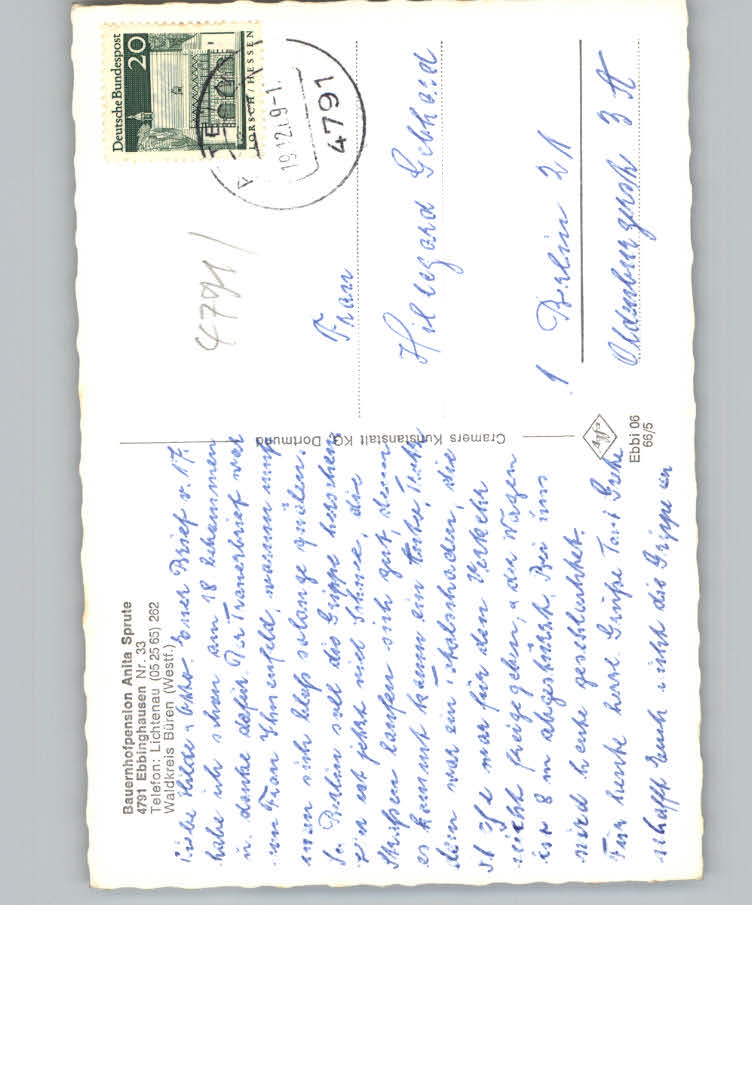 Bauernhofpension Anita Sprute
4791 Ebbinghausen Nr. 33
Telefon: Lichtenau (05 25 65) 262
Waldkreis Büren (Westf.)
Liebe Hilde u. Otto. Euer Brief v. 17.
habe ich schon am 18 bekommen
u. danke dafür. Der Trauerbrief war
von Frau Ihmenfeld, warum muß
man sich bloß solange quälen.
In Berlin soll die Grippe herschen
wir hat jetzt viel Schnee, die
Straßen laufen sich gut, denn
es kommt kaum ein Auto,
dem war ein Totalschaden, die
für den Verkehr
nicht freigegeben, u der Wagen
ist 8 m abgestürzt. Bei uns
wird heute geschlachtet.
Für heute herzl. Grüße Tante Grete
schafft Euch nicht die Grippe an
Cramers Kunstanstalt KG Dortmund
Agfa
Ebbi 06
66/5
Deutsche Bundespost
20
LORSCH/HESSEN
19.12.69-1
4791
4791
Frau
Hildegard Gebhard
1 Berlin 21
Oldenburgerstr 3 A